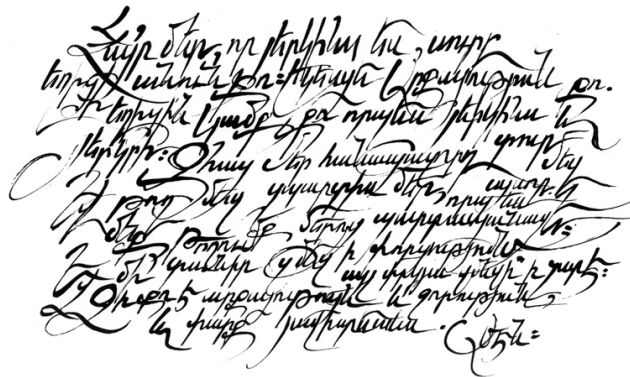 Հայր մեր, որ յերկինս ես, սուրբ
եղիցի անուն քո: Եկեսցէ արքայութիւն քո.
Եղիցին կամք քո որպէս յերկինս եւ
յերկրի: Զհաց մեր հանապազորդ տուր մեզ այսօր.
Եւ թող մեզ զպարտիս մեր, որպէս եւ
մեք թողումք մերոց պարտապանաց:
Եւ մի տանիր զմեզ ի փորձութիւն
այլ փրկեա զմեզ ի չարէ:
Զի քո է արքայութիւն եւ զօրութիւն,
եւ փառք յաւիտեանս. Ամէն: